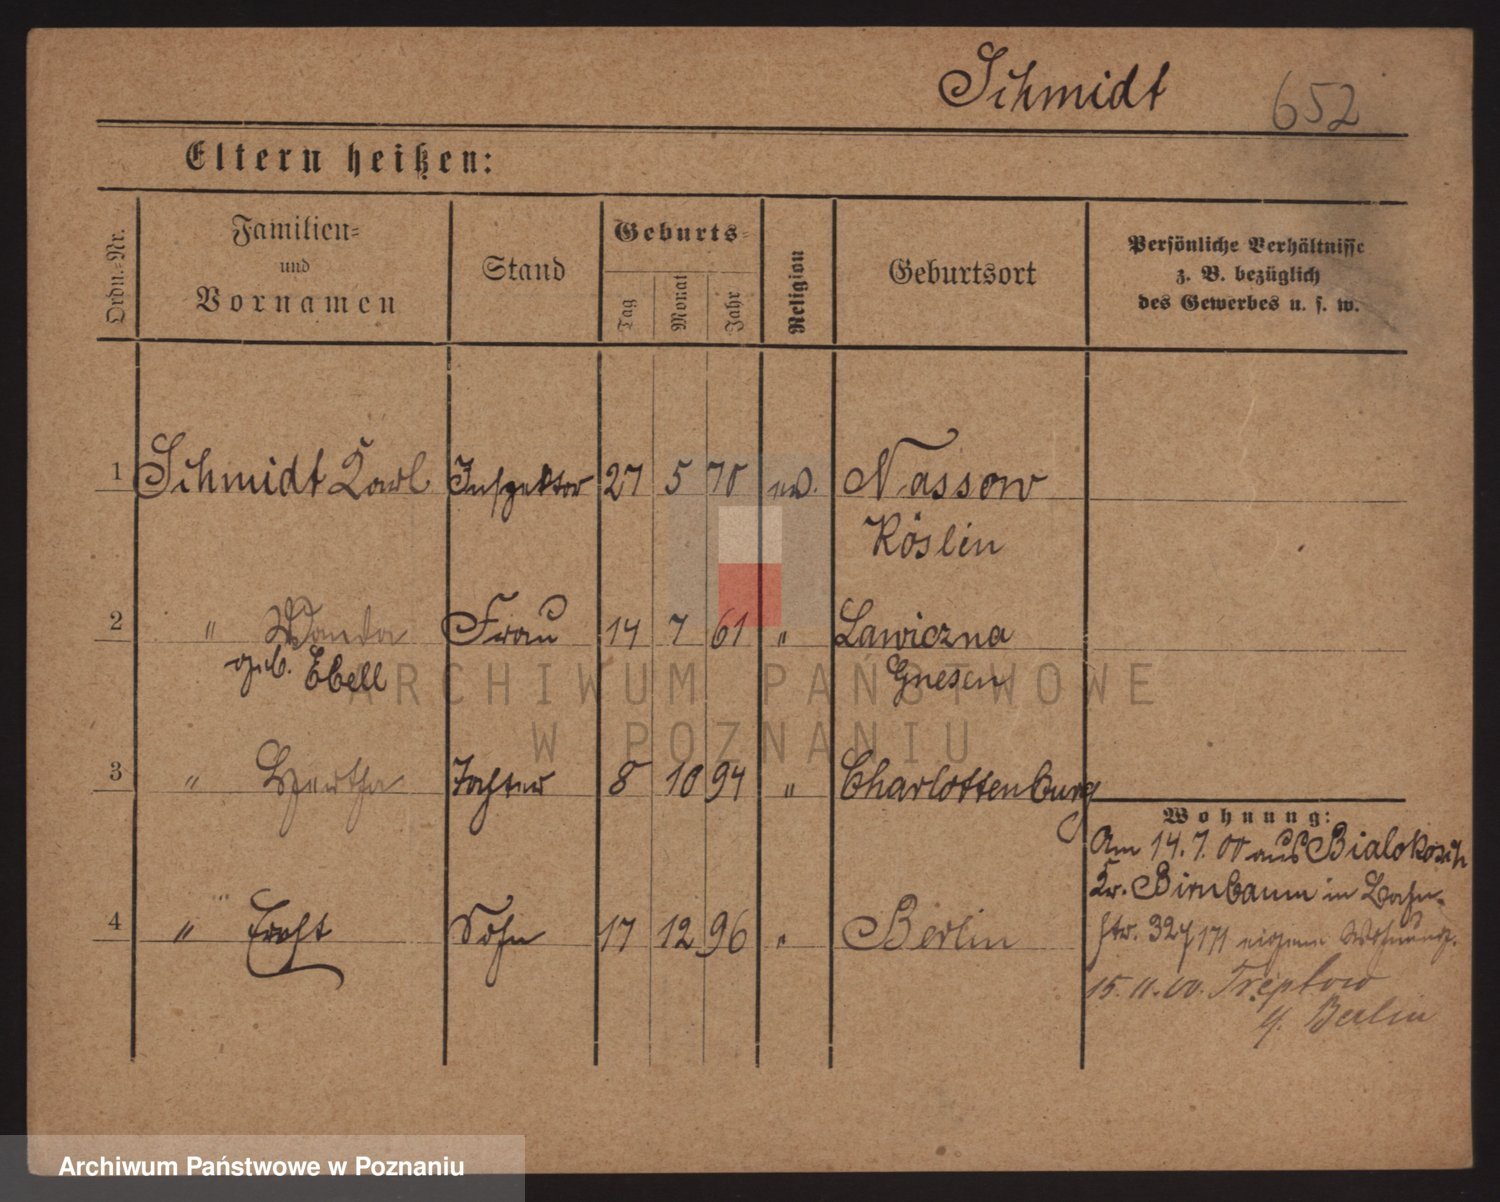 Schmidt 652
Eltern heißen:
Ordn.-Nr.
Familien-
und
Vornamen
Stand
Geburts-
Tag
Monat
Jahr
Religion
Geburtsort
Persönliche Verhältnisse
z. B. bezüglich
des Gewerbes u. s. w.
1 Schmidt Karl Inspektor 27 5 70 ev. Nassow
Köslin
2 " Wanda Frau 14 7 61 " Lawiczna
geb. Ebell Gnesen
3 " Hertha Tochter 8 10 94 " Charlottenburg
Wohnung:
Am 14.7.00 aus Bialokosch
Kr. Birnbaum in Bahn-
4 " Sohn 17 12 96 " Berlin
str. eigene Wohnung.
15.11.00. Treptow
b. Berlin
ARCHIWUM PAŃSTWOWE
W POZNANIU
Archiwum Państwowe w Poznaniu